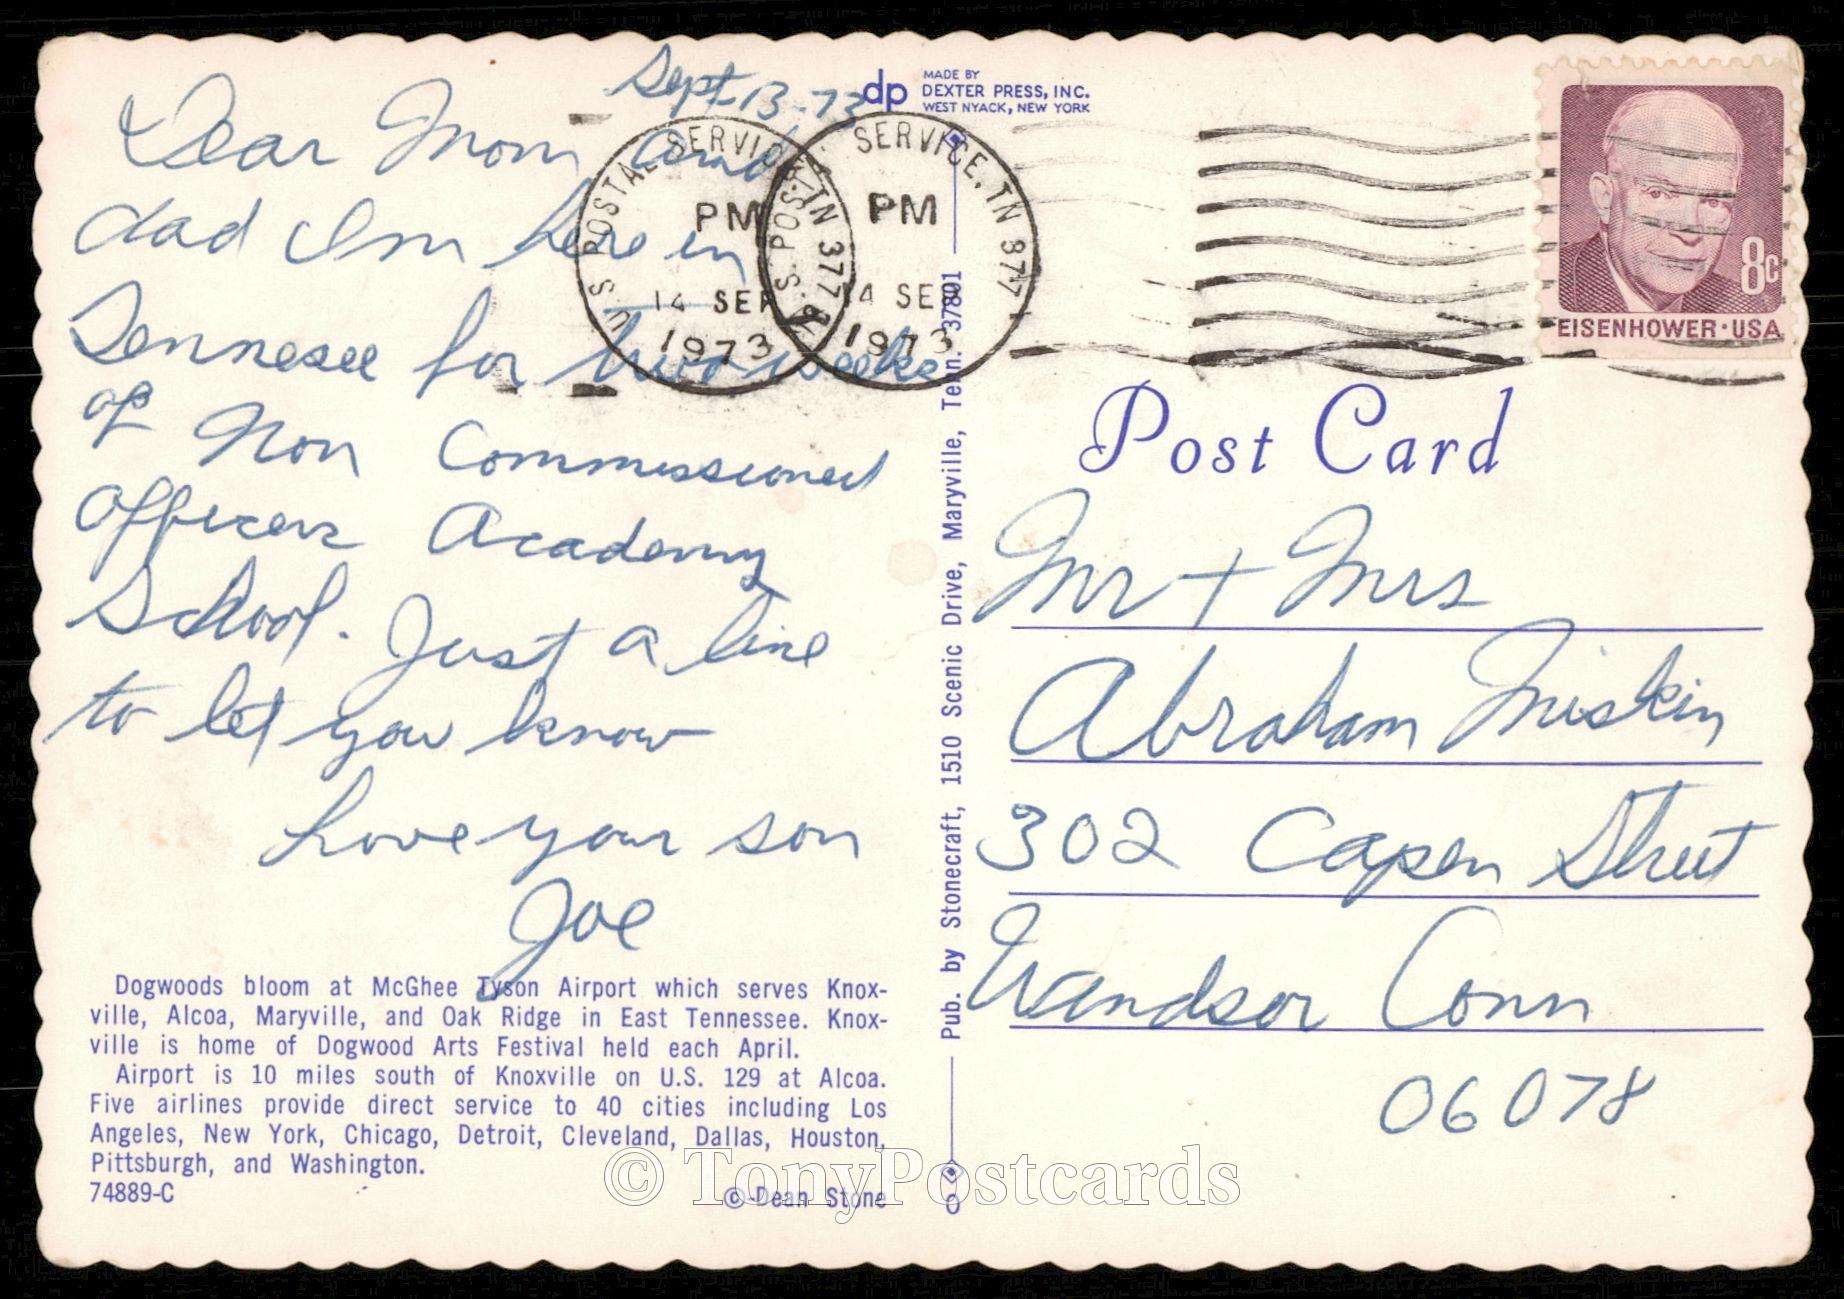 Sept-13-73
Dear Mom and
dad Im here in
Tennesee for two weeks
of Non Commissioned
Officers Academy
School. Just a line
to let you know
Love your son
Joe
Dogwoods bloom at McGhee Tyson Airport which serves Knox-
ville, Alcoa, Maryville, and Oak Ridge in East Tennessee. Knox-
ville is home of Dogwood Arts Festival held each April.
Airport is 10 miles south of Knoxville on U.S. 129 at Alcoa.
Five airlines provide direct service to 40 cities including Los
Angeles, New York, Chicago, Detroit, Cleveland, Dallas, Houston,
Pittsburgh, and Washington.
74889-C
© Dean Stone
dp
MADE BY
DEXTER PRESS, INC.
WEST NYACK, NEW YORK
Pub. by Stonecraft, 1510 Scenic Drive, Maryville, Tenn. 37801
U.S. POSTAL SERVICE, TN 377
PM
14 SEP
1973
U.S. POSTAL SERVICE, TN 377
PM
14 SEP
1973
8c
EISENHOWER·USA
Post Card
Mr + Mrs
Abraham Miskin
302 Capen Street
Wandsor Conn
06078
© TonyPostcards